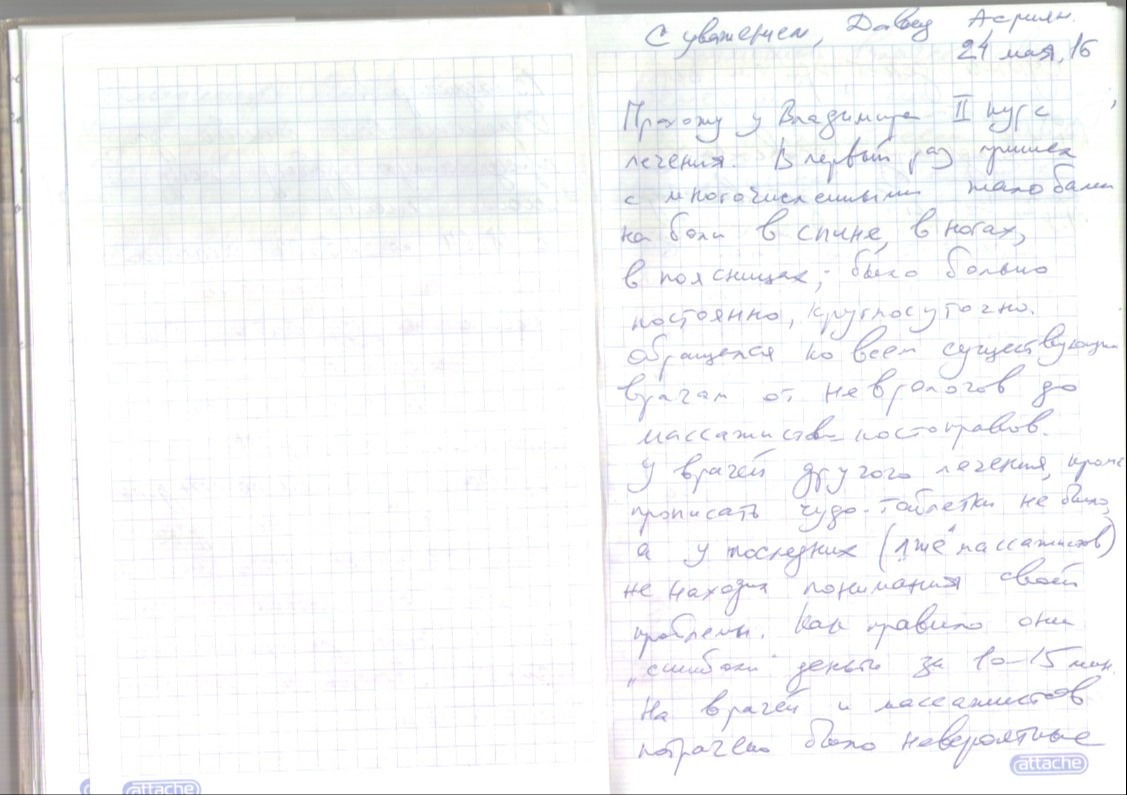 С уважением, Давид Асриян.
24 мая, 16
Прохожу у Владимира II курс
лечения. В первый раз пришел
с многочисленными жалобами
на боли в спине, в ногах,
в пояснице; было больно
постоянно, круглосуточно.
обращался ко всем существующим
врачам от неврологов до
массажистов костоправов.
У врачей другого лечения, кроме
прописать чудо-таблетки не было,
а у последних (лже"массажистов)
не находил понимания своей
проблемы. Как правило они
"сшибали" деньги за 10-15 мин.
На врачей и массажистов
потрачено было невероятные
attache
attache